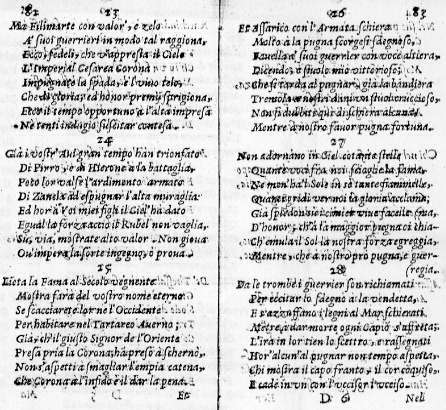 82 23
Ma Filimarte con valor', e zelo
A' suoi guerrieri in modo tal raggiona,
Ecco, fedeli, che v'appresta il Cielo
L'Imperial Cesarea Corona
Impugnate la spada, e l'vuuo telo,
Che di gloria, ed honor premij sprigiona,
Ecco il tempo opportuno à l'alta impresa
Ne tenti indugio suscitar contesa.
24
Già i vostr' Aui gran tempo han trionfato
Di Pirro, e di Hierone à la battaglia,
Poto lor valse l'ardimento armato
Di Zanela ad espugnar l'alta muraglia
Ed hor à Voi miei figli il Ciel' hà dato
Egual la forza acciò il Rubel non vaglia,
Sù, via, mostrate alto valor. Non gioua
Ou'impera la sorte ingegno, ò proua.
25
Lieta la Fama al Secolo vegnente
Mostra farà del vostro nome eterno
Se scacciarete lor ne l'Occidente
Per habitare nel Tartareo Auerno;
Già, ch'il giusto Signor de l'Oriente
Presa pria la Corona, hà preso à scherno,
Non s'aspetti à smagliar l'empia catena,
Che Corona à l'infido è il dar la pena.
Et
26 83
Et Assarico con l'Armata schiera
Molto à la pugna scorgesi sdegnoso,
Fauella à' suoi guerrier con voce altiera,
Dicendo, è stuolo mio vittorioso;
Che si tarda al pugnar, già la bandiera
Trema la nostra
Non si dubiti qui di schiera alcuna
Mentre à nostro fauor pugna fortuna.
27
Non adornano in Ciel cotante stelle
Quante voi frà noi sciaglie la fama,
Ne men' hà il Sole in sè tante fiammelle,
Quante gridi ver noi la gloria acclama;
Già spedon si e cimier viue facelle
D'honor; ch'à la maggior pugna ci chia-
Ch'emula il Sol la nostra forza egreggia,
Mentre, che à nostro prò pugna, e guer-
(regia.
28
Da le trombe i guerrier son richiamati
Per eccitar lo sdegno a la vendetta,
E s'azzuffano i legni al Mar schierati.
Metre, à dar morte ogni Capo s'affretta;
L'ira in lor tien lo scettro, e rassegnati
Hor' alcun' al pugnar non tempo aspetta,
Chi mostra il capo franto, chi cor cōquiso,
E cade in vn con l'vccisor l'vcciso.
D 6 Nell